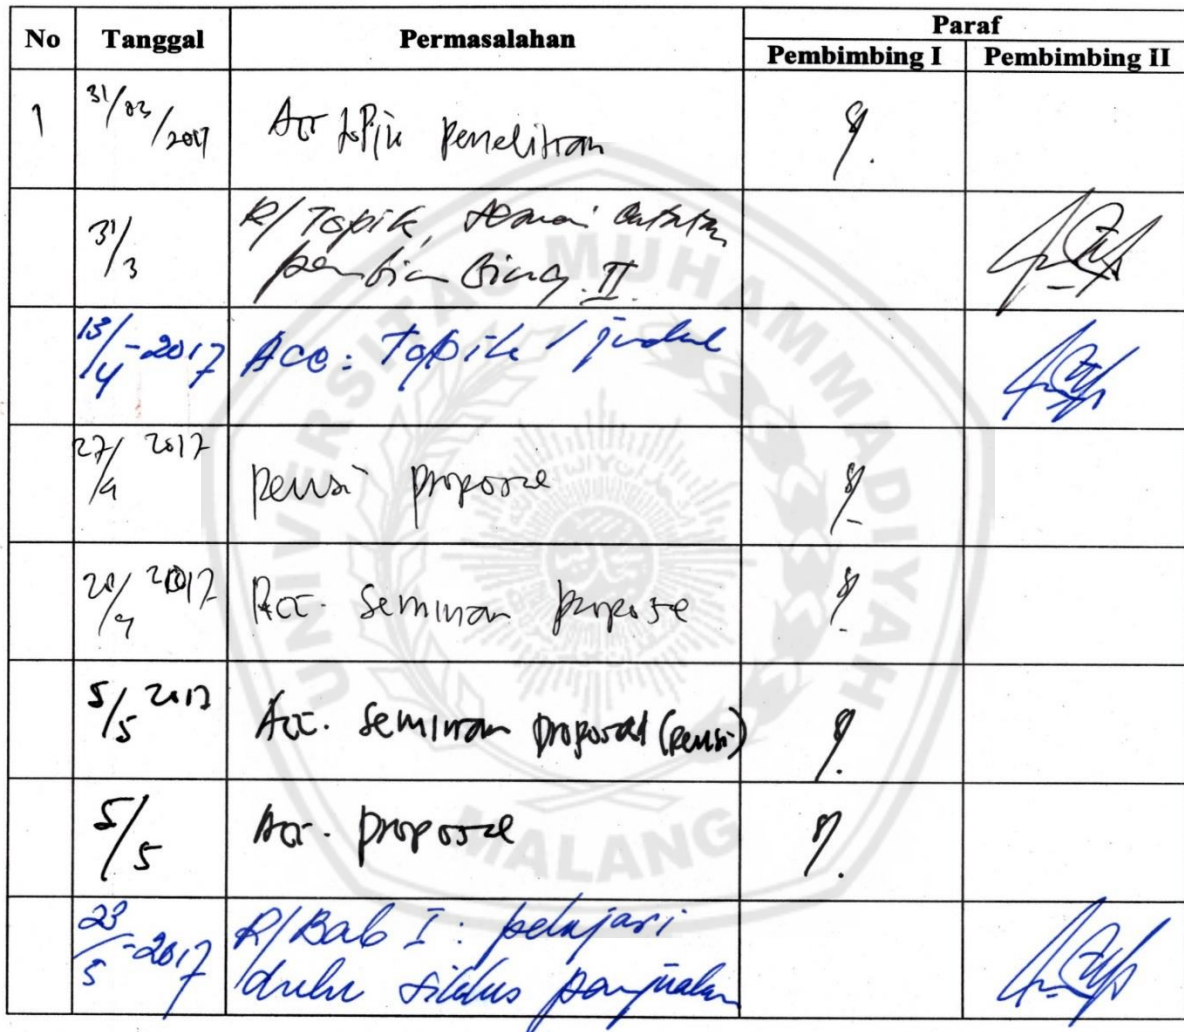 No Tanggal Permasalahan Paraf
Pembimbing I Pembimbing II
1 31/03/2017 Acc topik penelitian
31/3 R/ Topik, sesuai catatan
pembimbing II
13/4-2017 Acc: Topik / judul
27/4 2017 revisi proposal
28/4 2017 Acc. Seminar proposal
5/5 2017 Acc. Seminar proposal (revisi)
5/5 Acc. proposal
23/5-2017 R/ Bab I: pelajari
dulu siklus penjualan
UNIVERSITAS MUHAMMADIYAH
MALANG